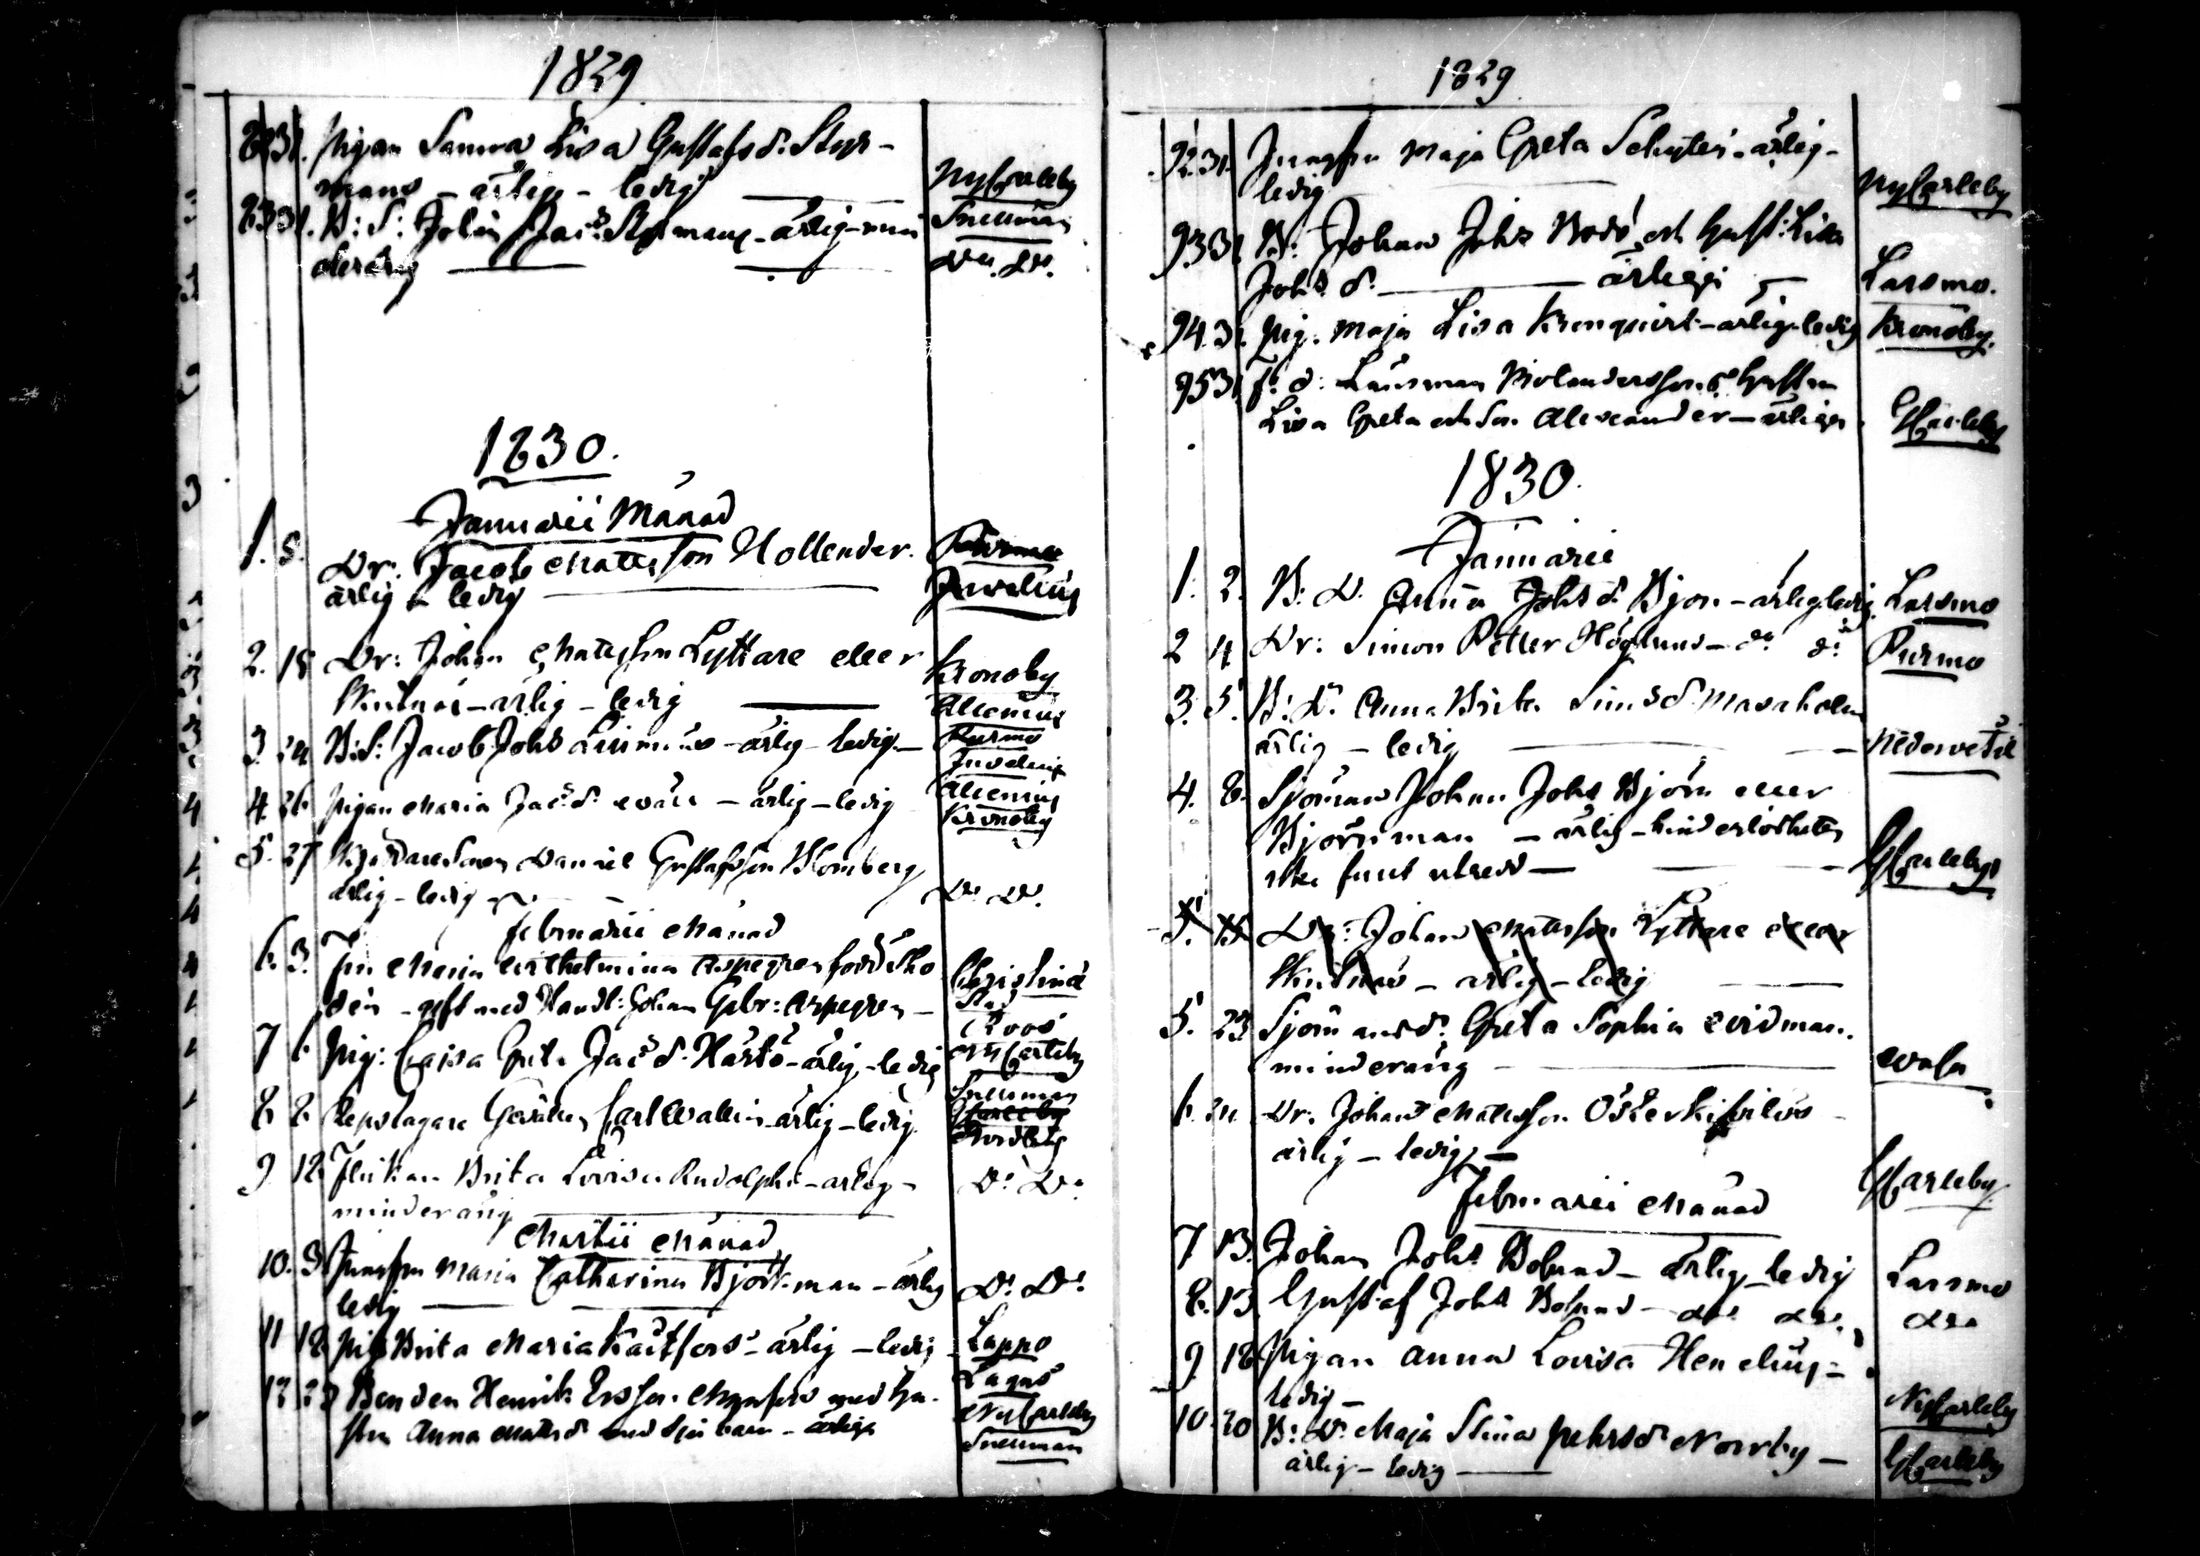 1829
82 31. Pigan Sanna Lisa Gustafsd. Styr-
mans - ärlig - ledig
NyCarleby
Snellman
83 31. B: S: Johan Jacs Styrmans - ärlig - min
derårig
Do. Do.
1830.
Januarii Månad
1. 8. Dr. Jacob Mattsson Hollender.
ärlig - ledig
Purmo
Juvelius
2. 18 Dr: Johan Mattsson Lyttare eller
Skutnäs - ärlig - ledig
Kronoby
Alcenius
3. 24 B: S: Jacob Johs - ärlig - ledig
Purmo
Juvelius
4. 26 Pigan Maria Jacsd. - ärlig - ledig
Alcenius
Kronoby
5. 27 Daniel Gustafsson Blomberg
ärlig - ledig
Do. Do.
Februarii Månad
6. 3. Fru Maria Wilhelmina Aspegren född
- gift med Handl: Johan Gabr: Aspegren -
Christinæ
Stad
Roos
7 6. Pig: Cajsa Greta Jacsd. Hästö - ärlig - ledig
NyCarleby
Snellman
8. 8. Repslagare Gesällen Carl Wallin - ärlig - ledig
GCarleby
9 12 Flickan Brita Lovisa Rudolphi - ärlig -
minderårig
Do. Do.
Martii Månad
10. 3. Jungfru Maria Catharina Björkman - ärlig
ledig
Do. Do.
11 18 Pig Brita Maria Kaitfors - ärlig - ledig
Lappo
Lagus
12 23 Bonden Henrik Ersson med hu-
stru Anna Mattsd. med sju barn - ärliga
NyCarleby
Snellman
1829
92. 31. Jungfru Maja Greta Schytéi - ärlig -
ledig
NyCarleby
93 31 B: Johan Johs Bosö och hust: Lisa
Johs d. - ärlige
Larsmo.
94. 31. Pig. Maja Lisa Kronqvist - ärlig - ledig
Kronoby.
95 31 F. d. Länsman Molandersson hustru
Lisa Greta och Son Alexander - ärliga
GCarleby
1830.
Januarii
1. 2. B: D. Anna Johsd. Björn - ärlig ledig
Larsmo
2 4 Dr: Simon Petter Höglund - do do
Purmo
3. 5. B: Dr Anna Brita Simsd. Masaholm
ärlig - ledig
Nedervetil
4. 8. Sjöman Johan Johs Björn eller
Björnman - ärlig - hinderlösheten
icke funnit utredd
GCarleby
5. 15 Dr: Johan Mattsson Lyttare eller
Skutnäs - ärlig - ledig
5. 23 Sjömansd. Greta Sophia Widman.
minderårig
Wasa
6. 24 Dr. Johan Mattsson Österkifvilös
ärlig - ledig
GCarleby
Februarii Månad
7 13. Johan Johs Bolund - ärlig - ledig
Larsmo
8. 13 Gustaf Johs Bolund - do. do.
do
9. 18 Pigan Anna Lovisa Henelius -
ledig -
NyCarleby
10. 20 B: Dr Maja Stina Pehrsd. Norrby -
ärlig - ledig
GCarleby